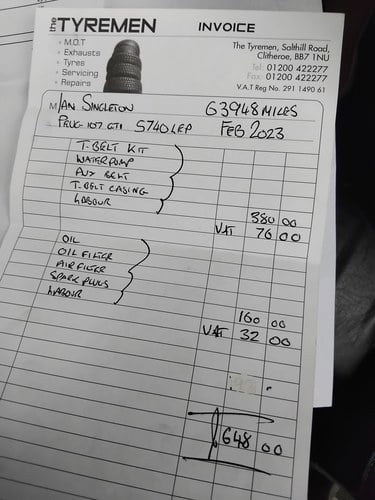 the TYREMEN INVOICE
• M.O.T
• Exhausts
• Tyres
• Servicing
• Repairs
The Tyremen, Salthill Road,
Clitheroe, BB7 1NU
Tel: 01200 422277
Fax: 01200 422277
V.A.T Reg No. 291 1490 61
M/ AN SINGLETON 63948 MILES
PEUG-107 GTI S740LEP FEB 2023
T.BELT KIT
WATERPUMP
AUX BELT
T.BELT CASING
LABOUR
380 00
VAT 76 00
OIL
OIL FILTER
AIR FILTER
SPARK PLUGS
LABOUR
160 00
VAT 32 00
£648 00